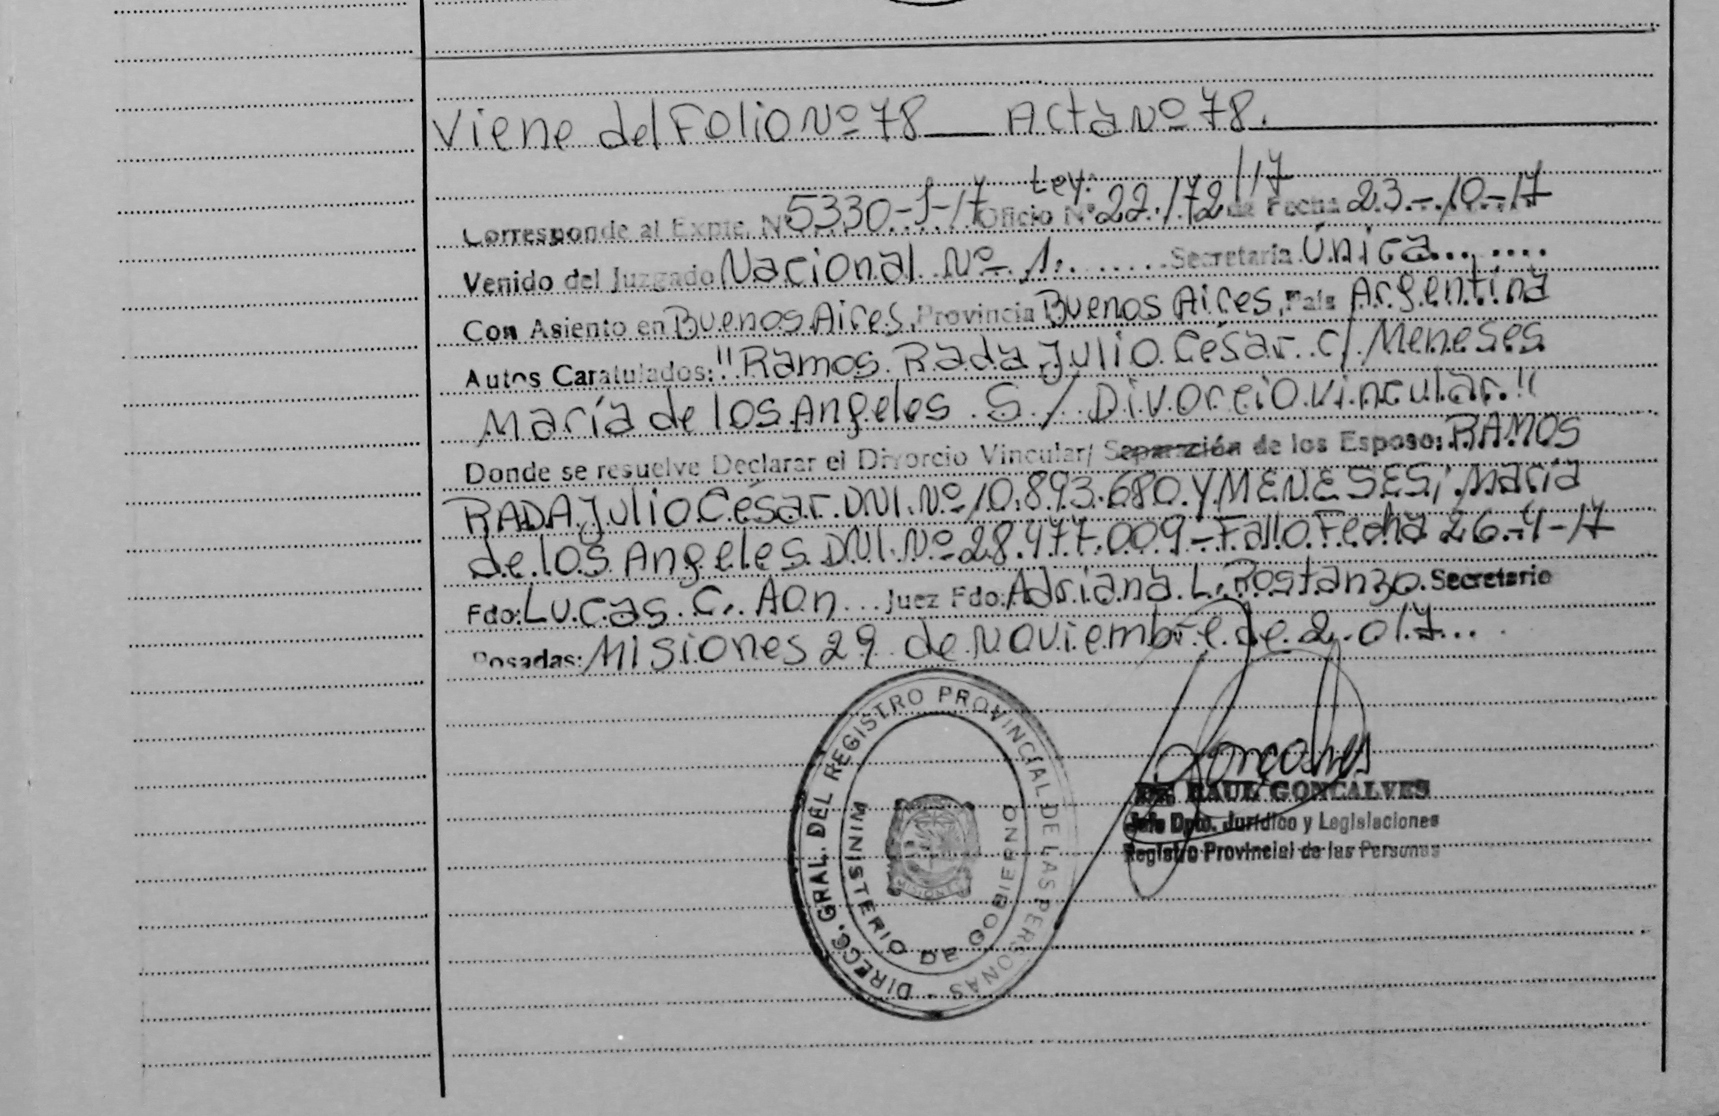 Viene del Folio Nº 78 ___ Acta Nº 78.
Ley: /17
Corresponde al Expte. Nº 5330-J-17 Oficio Nº 22.172 de Fecha 23.-10.-17
Venido del Juzgado Nacional Nº 1. ..... Secretaria Única.......
Con Asiento en Buenos Aires, Provincia Buenos Aires, País Argentina
Autos Caratulados: "Ramos Rada Julio César c/ Meneses
María de los Angeles S/ Divorcio Vincular."
Donde se resuelve Declarar el Divorcio Vincular/ Separación de los Esposo: RAMOS
RADA, Julio César. DNI. Nº 10.893.680. Y MENESES, María
de los Angeles DNI. Nº 28.477.009 - Fallo Fecha 26-4-17
Fdo: Lucas. C. Aon... Juez Fdo: Adriana L. Rostanzo. Secretario
Posadas: Misiones 29 de Noviembre de 2.017...
DIRECC. GRAL. DEL REGISTRO PROVINCIAL DE LAS PERSONAS -
MINISTERIO DE GOBIERNO
MISIONES
Goncalves
RAUL GONCALVES
Jefe Dpto. Jurídico y Legislaciones
Registro Provincial de las Personas